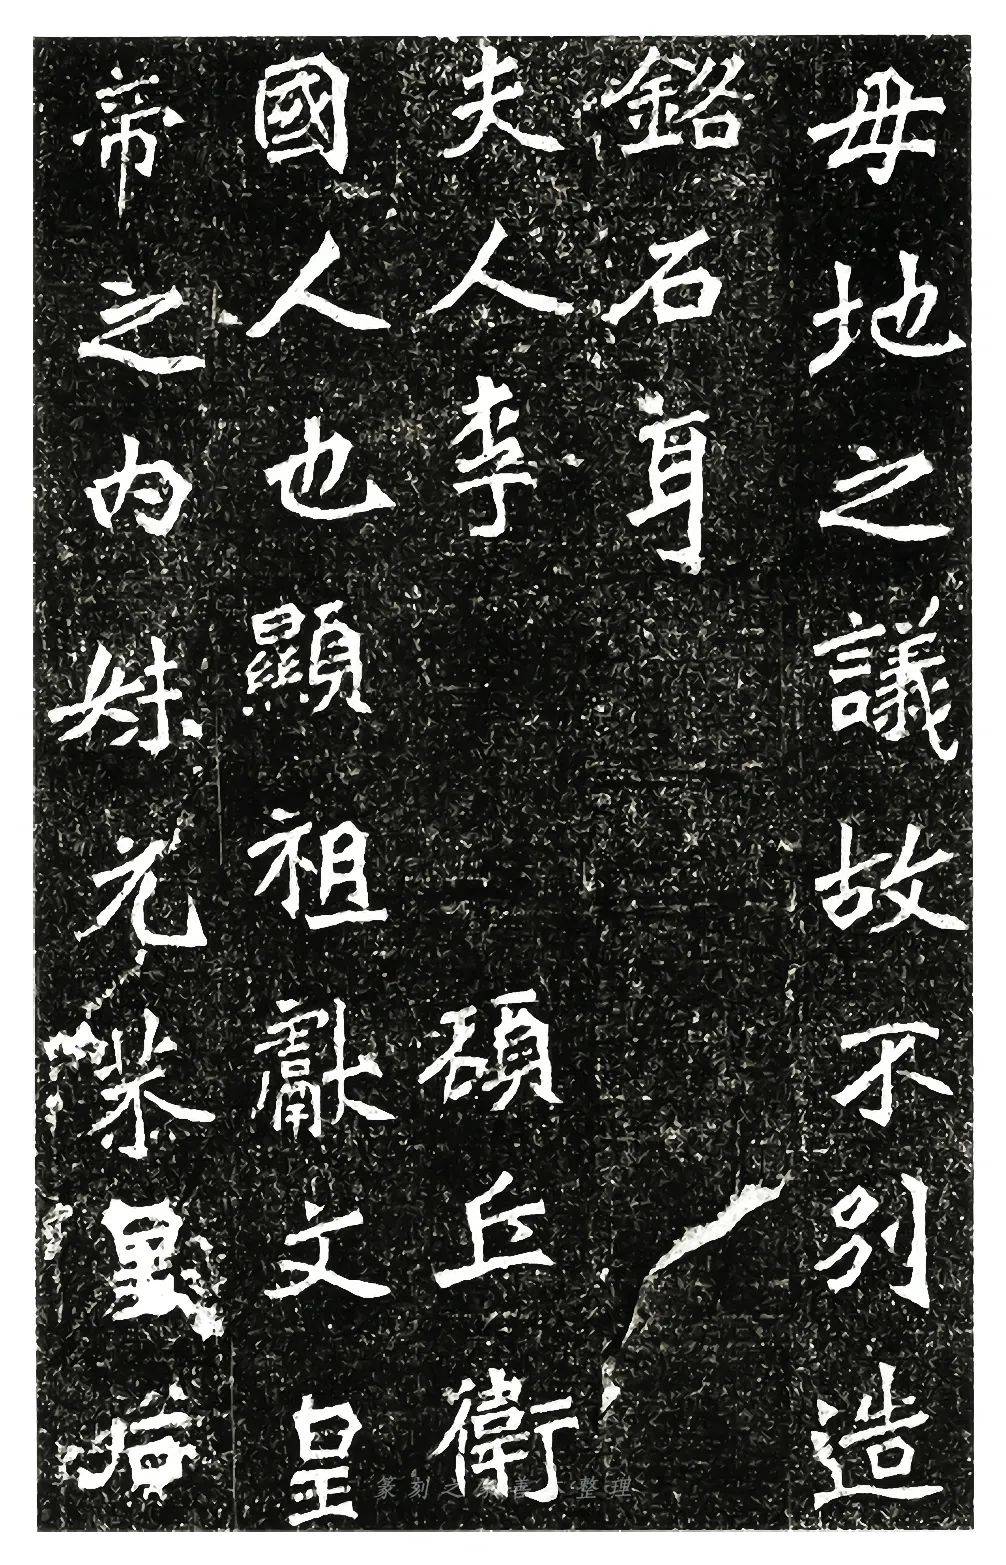 毋地之議故不別造
銘石耳
夫人李 頓丘衛
國人也顯祖獻文皇
帝之内妹元
篆刻之 整理